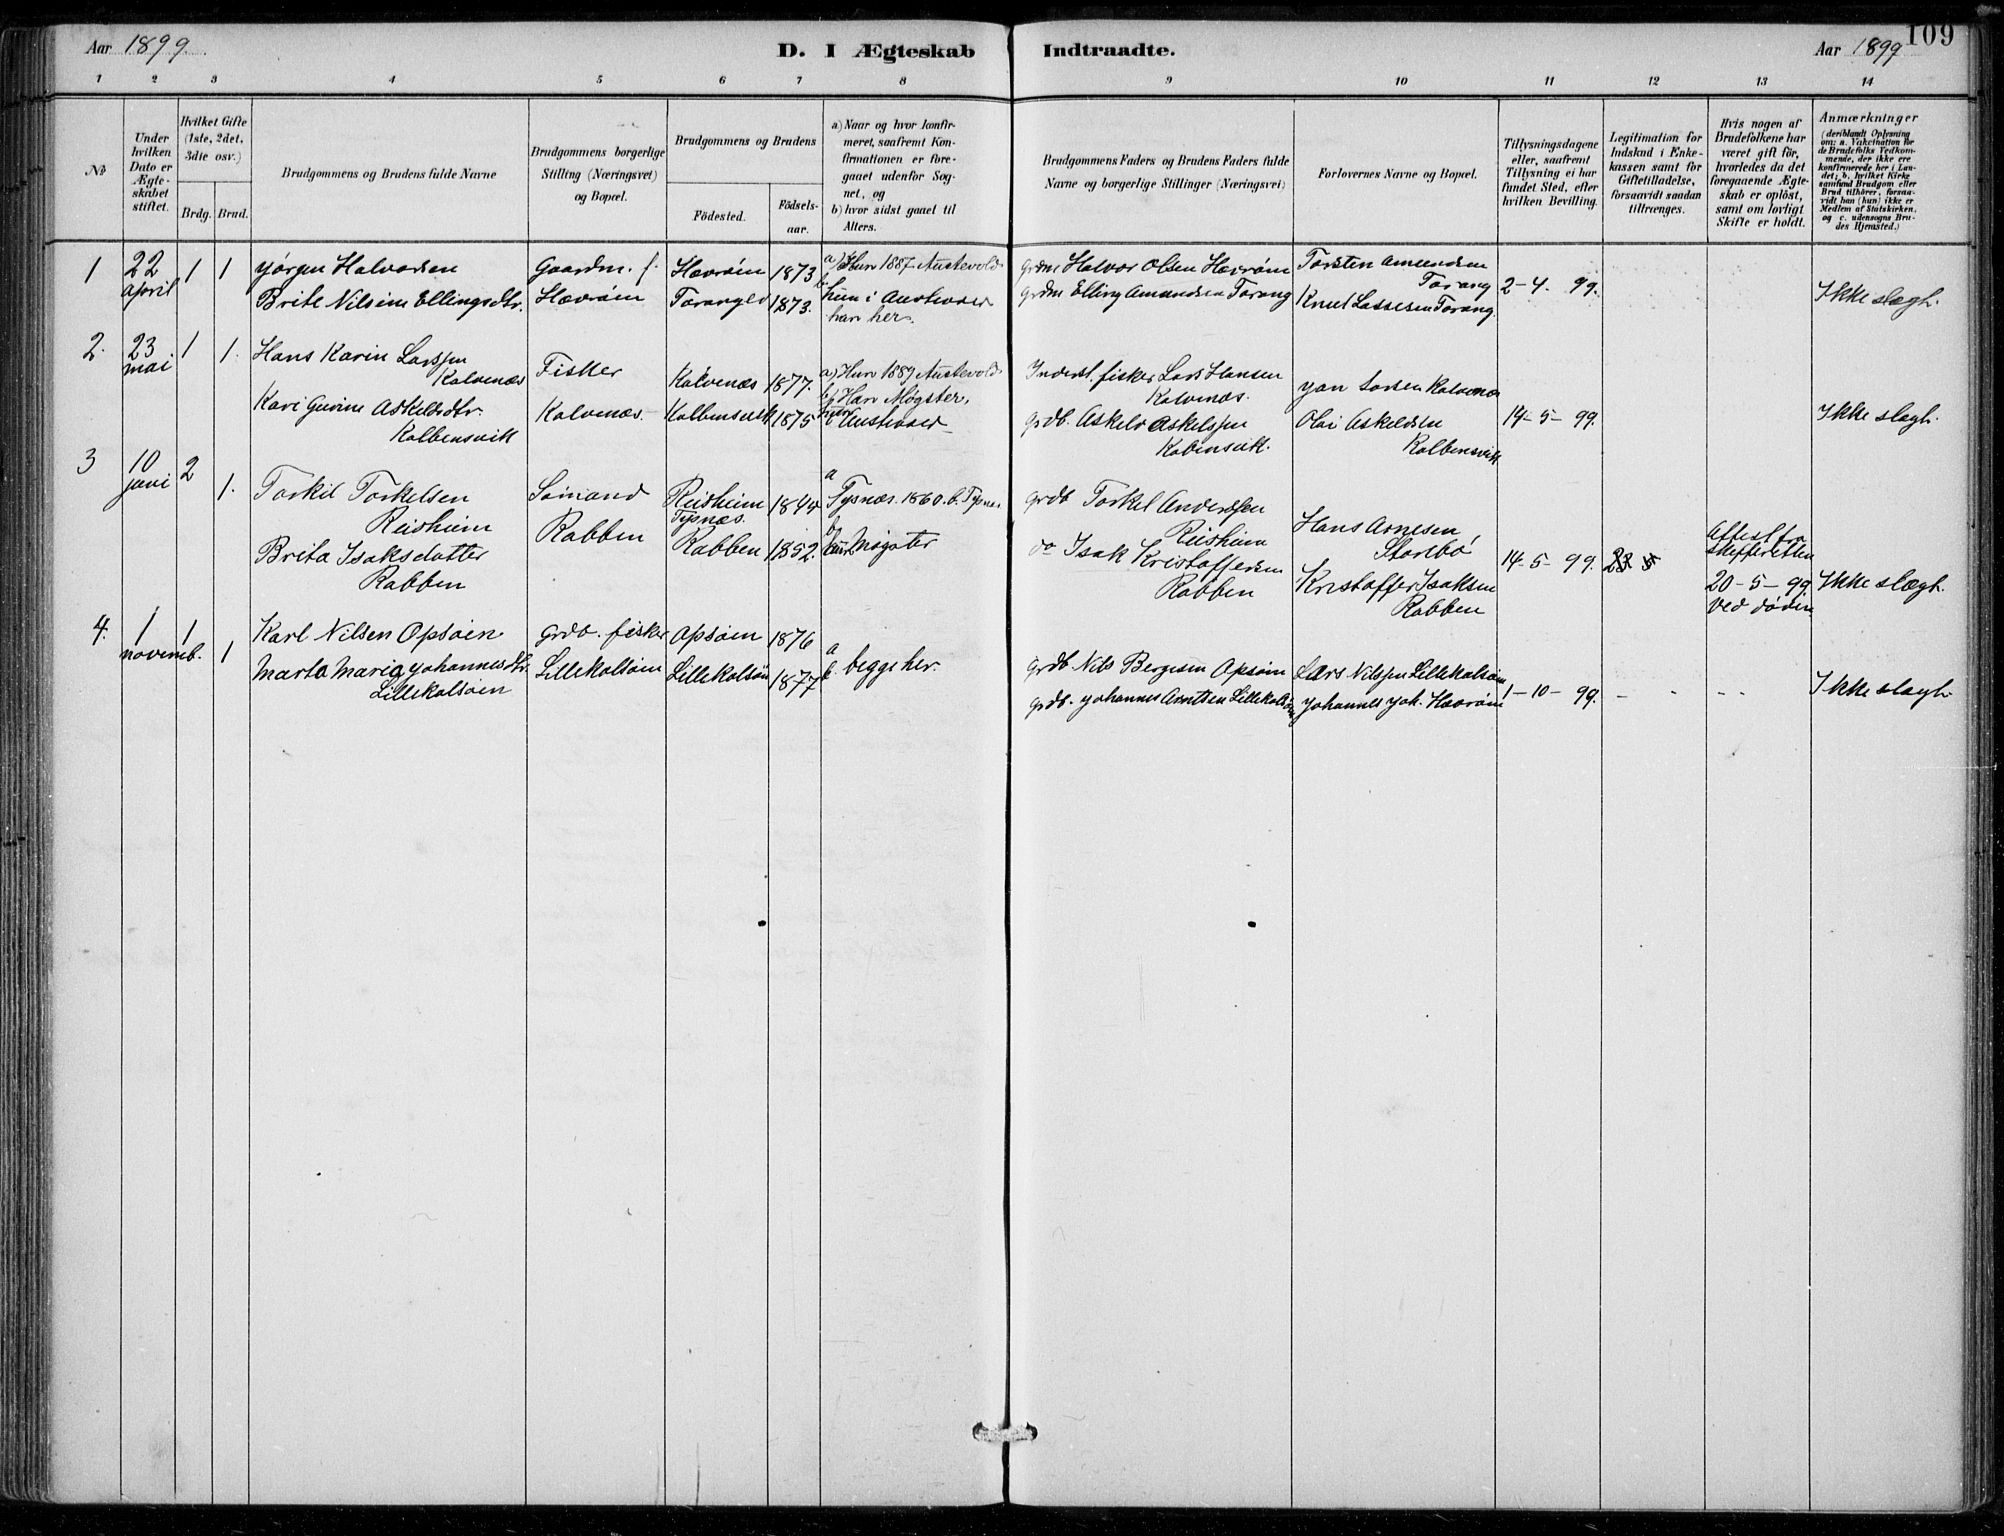 Aar 1899.
D. I Ægteskab Indtraadte.
Aar 1899
109
1 2 3 4 5 6 7 8 9 10 11 12 13 14
No
Under hvilken Dato er Ægteskabet stiftet.
Hvilket Gifte (1ste, 2det, 3die osv.)
Brdg. Brud.
Brudgommens og Brudens fulde Navne
Brudgommens borgerlige Stilling (Næringsvei) og Bopæl.
Brudgommens og Brudens
Födested.
Födselsaar.
a) Naar og hvor konfirmeret, saafremt Konfirmationen er foregaaet udenfor Sognet, og
b) hvor sidst gaaet til Alters.
Brudgommens Faders og Brudens Faders fulde Navne og borgerlige Stillinger (Næringsvei)
Forlovernes Navne og Bopæl.
Tillysningsdagene eller, saafremt Tillysning ei har fundet Sted, efter hvilken Bevilling.
Legitimation for Indskud i Enkekassen samt for Giftetilladelse, forsaavidt saadan tiltrænges.
Hvis nogen af Brudefolkene har været gift för, hvorledes da det foregaaende Ægteskab er oplöst, samt om lovligt Skifte er holdt.
Anmærkninger
(deriblandt Oplysning om: a. Vakcination for de Brudefolks Vedkommende, der ikke ere konfirmerede her i Landet; b. hvilket Kirkesamfund Brudgom eller Brud tilhörer, forsaavidt han (hun) ikke er Medlem af Statskirken, og c. udensogns Brudes Hjemsted.)
1 22 april 1 1
Jørgen Halvorsen
Brite Nilsine Ellingsdtr.
Gaardm. f.
Hævröen
Hævröen 1873
Torangen 1873.
a) Hun 1887 Austevold
b) hun i Austevold
han her.
grdm Halvor Olsen Hevröen
grdm Elling Amundsen Torang
Torsten Amundsen Torang
Knud Lassesen Torang.
2-4. 99.
Ikke slægt.
2. 23 mai 1 1.
Hans Karin Larssen
Kalvenæs
Kari Gurine Askeldsdtr.
Kolbensvik
Fisker
Kalvenæs.
Kalvenæs 1877.
Kolbensvik 1875
a) Hun 1889 Austevold
b) Han Møgster,
hun Austevold
Inderst. fisker Lars Hansen
Kalvenæs.
grdb. Askeld Askelssen
Kobensvik.
Jan Larsen Kalvenæs
Olai Askeldsen
Kolbensvik
14-5-99.
Ikke slægt.
3 10 juni 2 1.
Torkil Torkelsen
Reisheim
Brita Isaksdatter
Rabben
Sömand
Rabben
Reisheim
Tysnæs. 1844
Rabben 1852.
a
Tysnæs. 1860. b. Tysnes
b hun Møgster
grdb Torkel Anderssen
Reisheim
do Isak Kristoffersen
Rabben
Hans Arnesen
Storebø
Kristoffer Isaksen
Rabben
14-5-99.
Attest fra
skifteretten
20-5-99.
ved døden
Ikke slægt.
4. 1 novemb. 1 1
Karl Nilsen Opsöen
Marta Maria Johannesdtr.
Lillekalsöen
grdb. fisker
Lillekalsöen
Opsöen 1876
Lillekalsöen 1877
a
b. begge her.
grdb Nils Bergesen Opsöen
grdb. Johannes Arntsen Lillekalsöen
Lars Nilssen Lillekalsöen
Johannes Joh. Hevröen
1-10-99.
- - - -
Ikke slægt